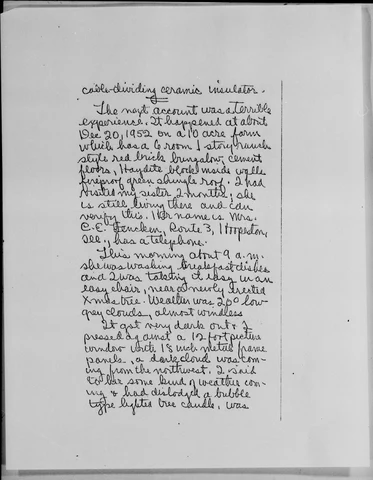 cable-dividing ceramic insulator.
The next account was a terrible
experience. It happened at about
Dec 20, 1952 on a 10 acre farm
which has a 6 room 1 story ranch
style red brick bungalow, cement
floors, Haydite block inside walls
fireproof green shingle roof. I had
visited my sister 2 months, she
is still living there and can
verify this. Her name is Mrs.
C.E. Route 3, Hoopeston,
Ill., has a telephone.
This morning about 9 a.m.
she was washing breakfast dishes
and I was taking it easy in an
easy chair, near a newly erected
Xmas tree. Weather was 20° low
grey clouds, almost windless
It got very dark out & I
pressed against a 12 foot picture
window with 18 inch metal frame
panels, a dark cloud was com-
ing from the northwest. I said
to her some kind of weather com-
ing & had dislodged a bubble
type lighted tree candle, was